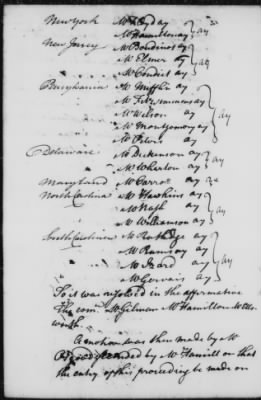 New York Mr Floyd ay } ay
Mr Hamilton ay
New Jersey Mr Boudinot ay } ay
Mr Elmer ay
Mr Condict ay
Pennsylvania Mr Mifflin ay } ay
Mr Fitzsimmons ay
Mr Wilson ay
Mr Montgomery ay
Mr Peters ay
Delaware Mr Dickinson ay } ay
Mr Wharton ay
Maryland Mr Carrol ay
North Carolina Mr Hawkins ay } ay
Mr Nash ay
Mr Williamson ay
South Carolina Mr Rutledge ay } ay
Mr Ramsay ay
Mr Izard ay
Mr Gervais ay
So it was resolved in the affirmative
The com. Mr Gilman Mr Hamilton Mr Ells
worth
A motion was then made by Mr
seconded by Mr Hamilton that
the entry of this proceeding be made on